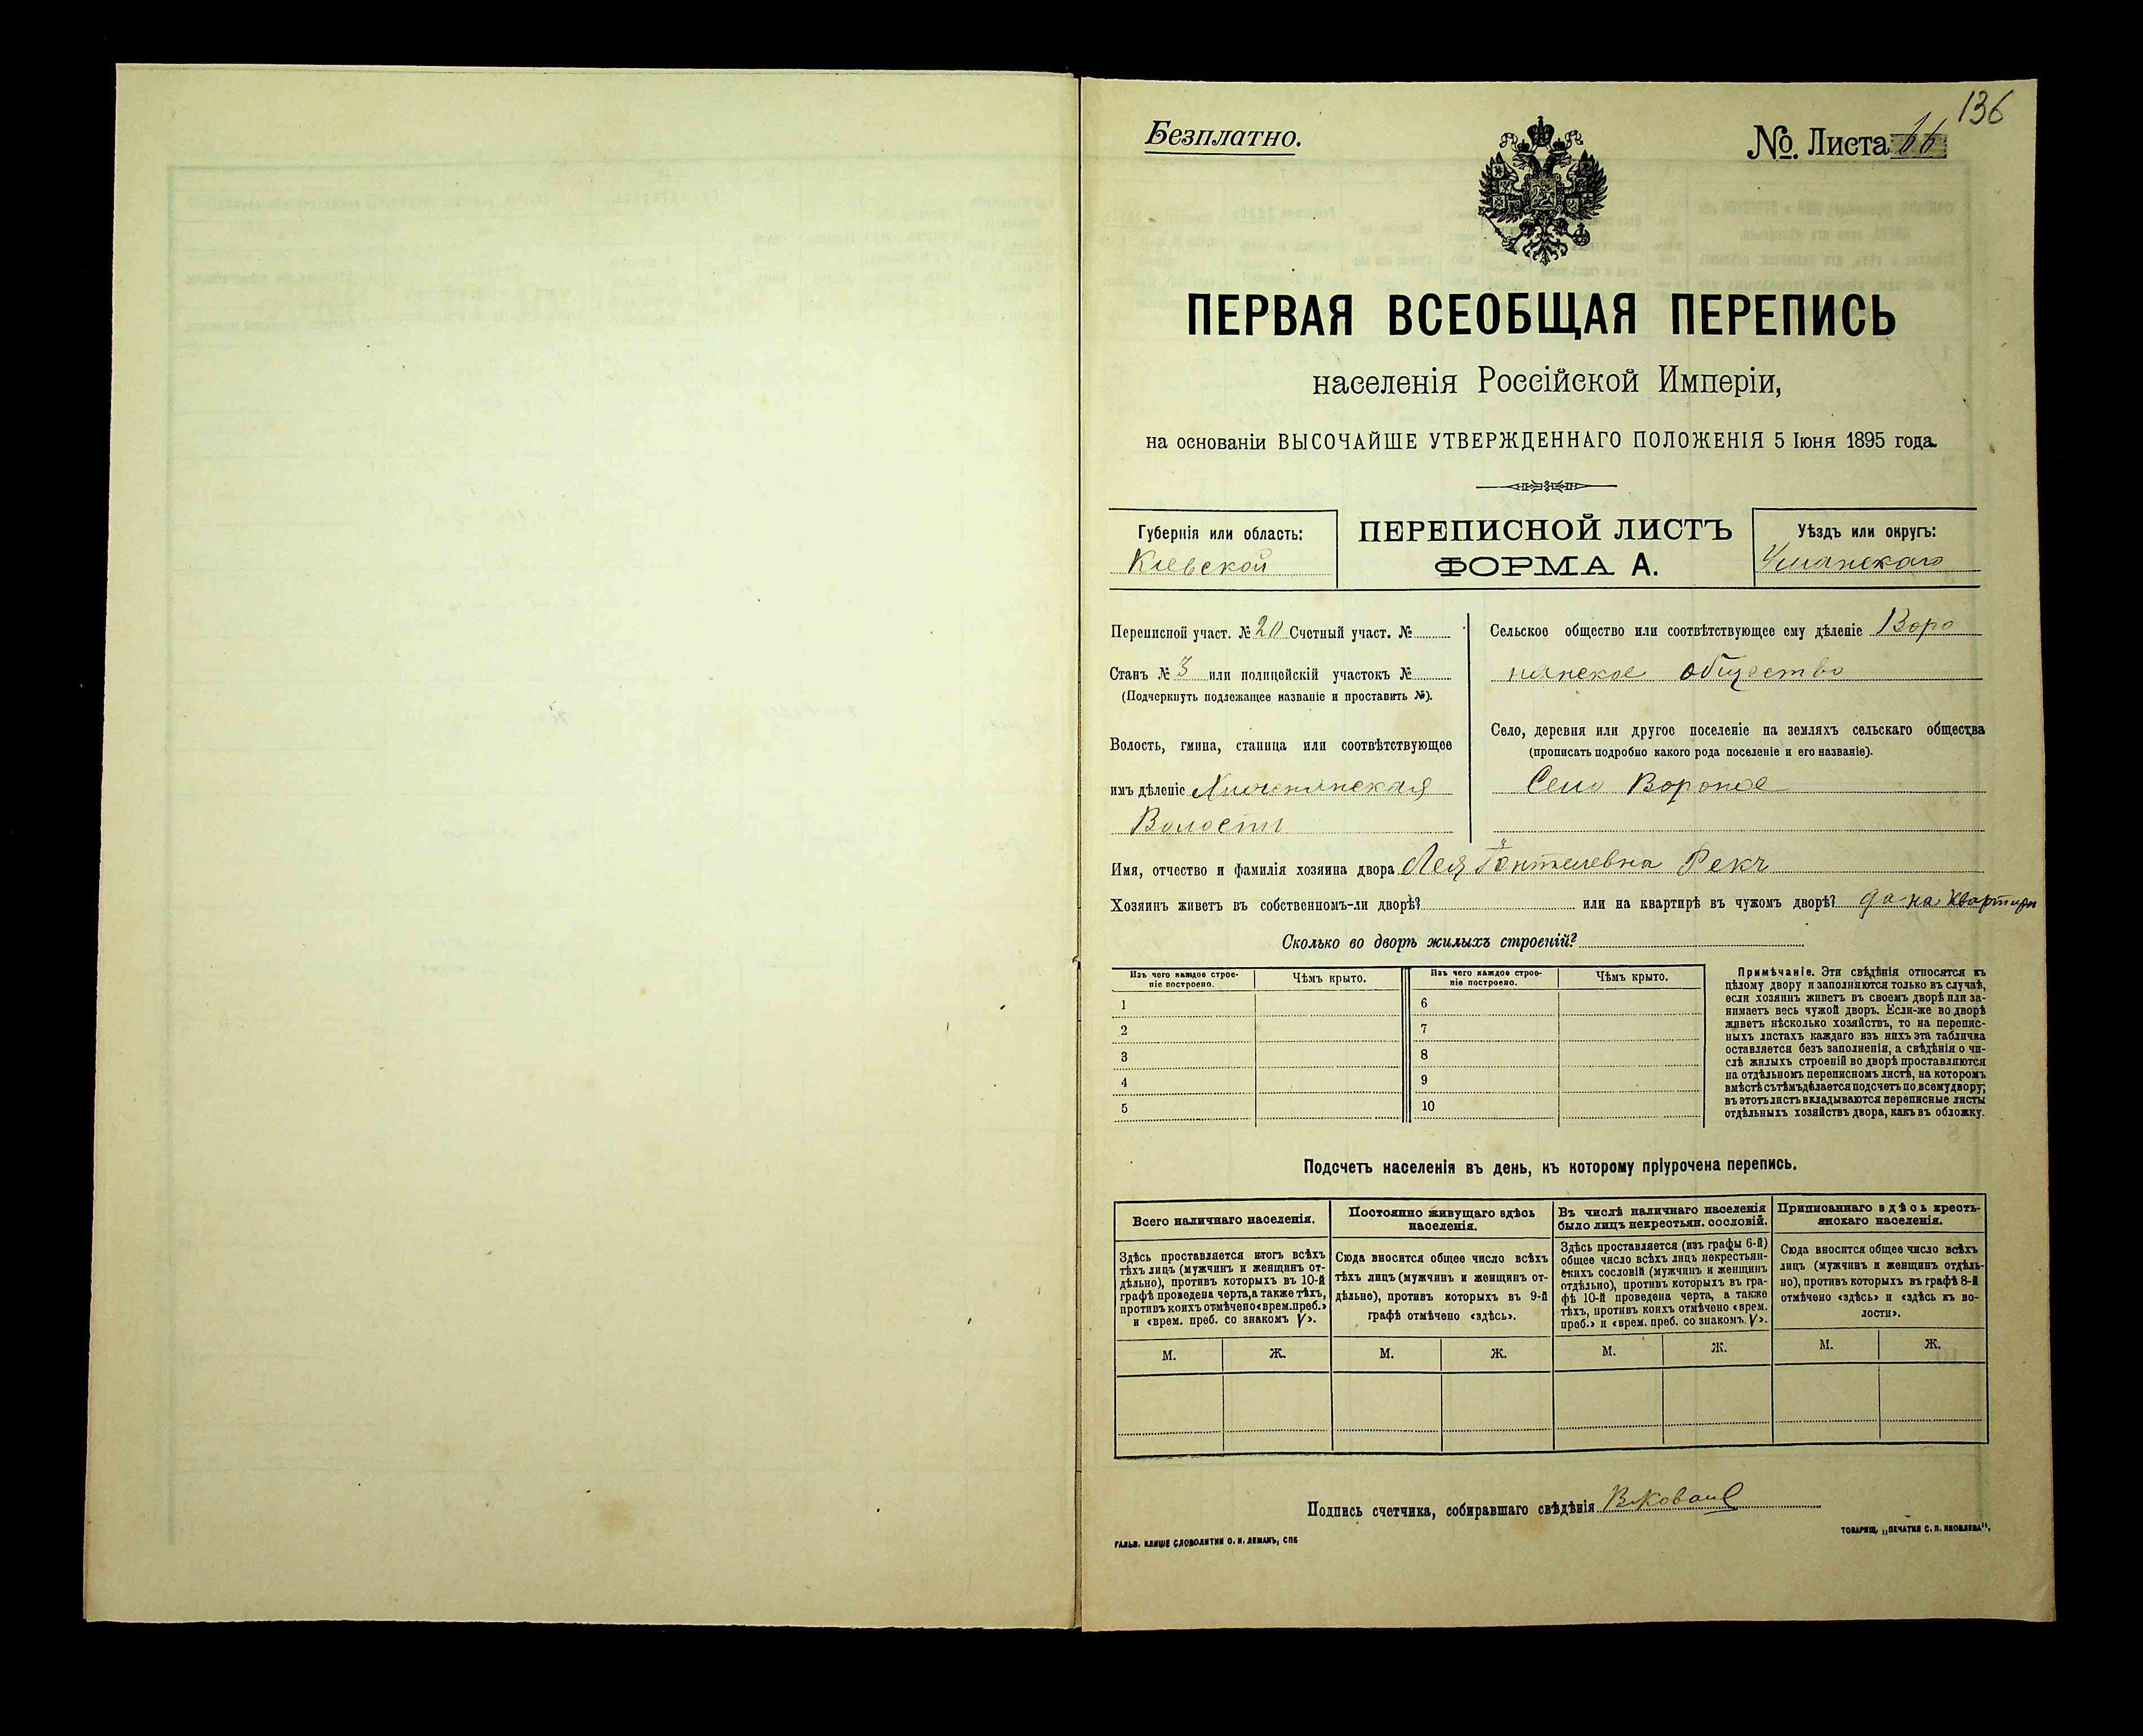 136
Безплатно.
№. Листа 16
ПЕРВАЯ ВСЕОБЩАЯ ПЕРЕПИСЬ
населенія Россійской Имперіи,
на основаніи ВЫСОЧАЙШЕ УТВЕРЖДЕННАГО ПОЛОЖЕНІЯ 5 Іюня 1895 года.
Губернія или область:
Кіевской
ПЕРЕПИСНОЙ ЛИСТЪ
ФОРМА А.
Уѣздъ или округъ:
Уманскаго
Переписной участ. № 20 Счетный участ. №
Станъ № 3 или полицейскій участокъ №
(Подчеркнуть подлежащее названіе и проставить №).
Волость, гмина, станица или соотвѣтствующее
имъ дѣленіе
Волости
Сельское общество или соотвѣтствующее ему дѣленіе Воро
нянское общество
Село, деревня или другое поселеніе на земляхъ сельскаго общества
(прописать подробно какого рода поселеніе и его названіе).
Село Вороное
Имя, отчество и фамилія хозяина двора Лея
Хозяинъ живетъ въ собственномъ-ли дворѣ? или на квартирѣ въ чужомъ дворѣ? да на квартири
Сколько во дворѣ жилыхъ строеній?
Изъ чего каждое строе-
ніе построено.
Чѣмъ крыто.
Изъ чего каждое строе-
ніе построено.
Чѣмъ крыто.
1
2
3
4
5
6
7
8
9
10
Примѣчаніе. Эти свѣдѣнія относятся къ
цѣлому двору и заполняются только въ случаѣ,
если хозяинъ живетъ въ своемъ дворѣ или за-
нимаетъ весь чужой дворъ. Если-же во дворѣ
живетъ нѣсколько хозяйствъ, то на перепис-
ныхъ листахъ каждаго изъ нихъ эта табличка
оставляется безъ заполненія, а свѣдѣнія о чи-
слѣ жилыхъ строеній во дворѣ проставляются
на отдѣльномъ переписномъ листѣ, на которомъ
вмѣстѣ съ тѣмъ дѣлается подсчетъ по всему двору;
въ этотъ листъ вкладываются переписные листы
отдѣльныхъ хозяйствъ двора, какъ въ обложку.
Подсчетъ населенія въ день, къ которому пріурочена перепись.
Всего наличнаго населенія.
Здѣсь проставляется итогъ всѣхъ
тѣхъ лицъ (мужчинъ и женщинъ от-
дѣльно), противъ которыхъ въ 10-й
графѣ проведена черта, а также тѣхъ,
противъ коихъ отмѣчено «врем. преб.»
и «врем. преб. со знакомъ V».
Постоянно живущаго здѣсь
населенія.
Сюда вносится общее число всѣхъ
тѣхъ лицъ (мужчинъ и женщинъ от-
дѣльно), противъ которыхъ въ 9-й
графѣ отмѣчено «здѣсь».
Въ числѣ наличнаго населенія
было лицъ некрестьян. сословій.
Здѣсь проставляется (изъ графы 6-й)
общее число всѣхъ лицъ некрестьян-
скихъ сословій (мужчинъ и женщинъ
отдѣльно), противъ которыхъ въ гра-
фѣ 10-й проведена черта, а также
тѣхъ, противъ коихъ отмѣчено «врем.
преб.» и «врем. преб. со знакомъ V».
Приписаннаго здѣсь кресть-
янскаго населенія.
Сюда вносится общее число всѣхъ
лицъ (мужчинъ и женщинъ отдѣль-
но), противъ которыхъ въ графѣ 8-й
отмѣчено «здѣсь» и «здѣсь къ во-
лости».
М. Ж. М. Ж. М. Ж. М. Ж.
Подпись счетчика, собиравшаго свѣдѣнія
ГАЛЬВ. КЛИШЕ СЛОВОЛИТНИ О. И. ЛЕМАНЪ, СПБ
ТОВАРИЩ. „ПЕЧАТНЯ С. П. ЯКОВЛЕВА“.